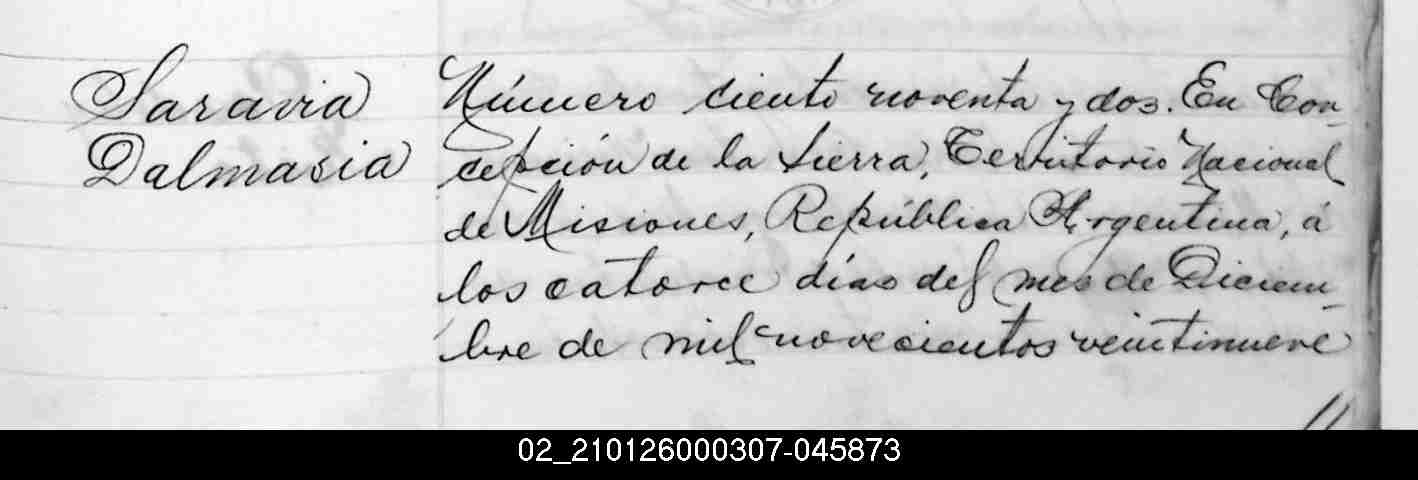 Saravia
Dalmasia
Número ciento noventa y dos. En Con-
cepción de la Sierra, Territorio Nacional
de Misiones, República Argentina, á
los catorce días del mes de Diciem-
bre de mil novecientos veintinueve
02_210126000307-045873